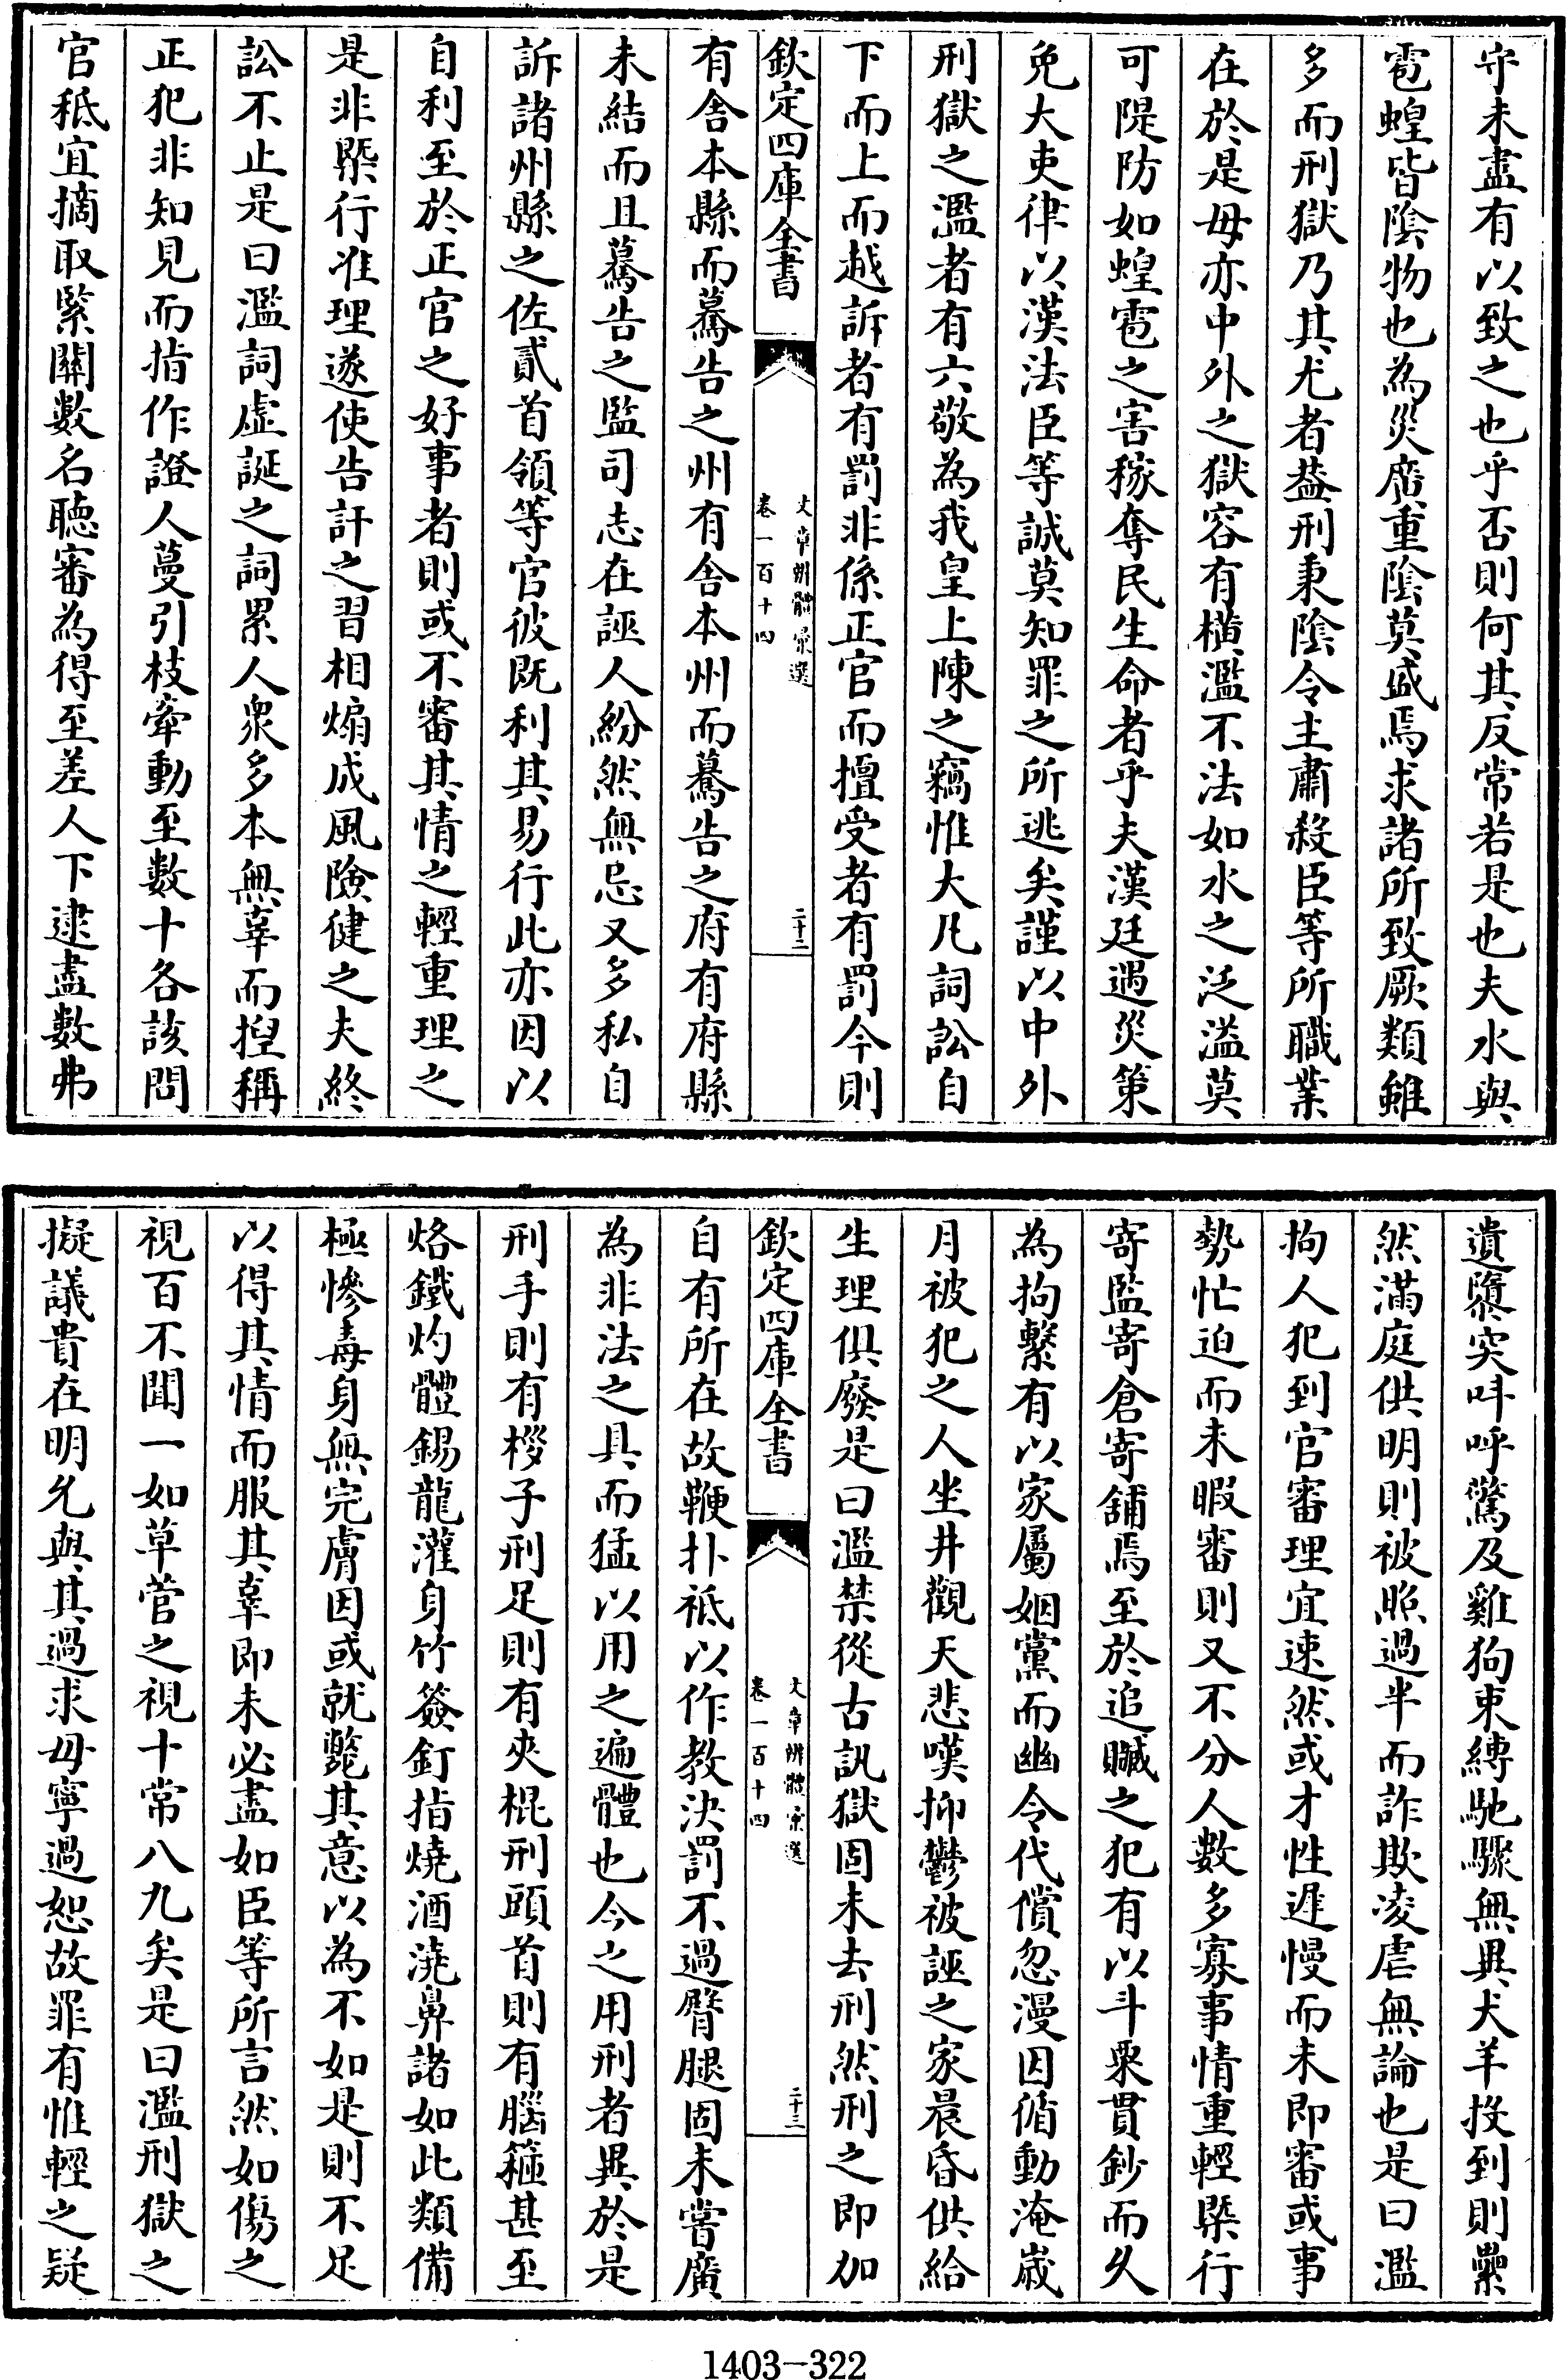 守未盡有以致之也乎否則何其反常若是也夫水與
雹蝗皆陰物也為災廣重陰莫盛焉求諸所致厥類雖
多而刑獄乃其尤者葢刑秉陰令主肅殺臣等所職業
在於是毋亦中外之獄容有橫濫不法如水之泛溢莫
可隄防如蝗雹之害稼奪民生命者乎夫漢廷遇災策
免大吏律以漢法臣等誠莫知罪之所逃矣謹以中外
刑獄之濫者有六敬為我皇上陳之竊惟大凡詞訟自
下而上而越訴者有罰非係正官而擅受者有罰今則
欽定四庫全書
文章辨體彚選
卷一百十四
二十二
有舍本縣而驀告之州有舍本州而驀告之府有府縣
未結而且驀告之監司志在誣人紛然無忌又多私自
訴諸州縣之佐貳首領等官彼既利其易行此亦因以
自利至於正官之好事者則或不審其情之輕重理之
是非槩行准理遂使告訐之習相煽成風險健之夫終
訟不止是曰濫詞虛誕之詞累人衆多本無辜而揑稱
正犯非知見而指作證人蔓引枝牽動至數十各該問
官秪宜摘取緊關數名聽審為得至差人下逮盡數弗
遺隳突叫呼驚及雞狗束縛馳驟無異犬羊投到則纍
然滿庭供明則被照過半而詐欺凌虐無論也是曰濫
拘人犯到官審理宜速然或才性遲慢而未即審或事
勢忙迫而未暇審則又不分人數多寡事情重輕槩行
寄監寄倉寄舖焉至於追贓之犯有以斗粟貫鈔而久
為拘繫有以家屬姻黨而幽令代償忽漫因循動淹歲
月被犯之人坐井觀天悲嘆抑鬱被誣之家晨昏供給
生理俱廢是曰濫禁從古訊獄固未去刑然刑之即加
欽定四庫全書
文章辨體彚選
卷一百十四
二十三
自有所在故鞭扑祗以作教決罰不過臀腿固未嘗廣
為非法之具而猛以用之遍體也今之用刑者異於是
刑手則有桚子刑足則有夾棍刑頭首則有腦箍甚至
烙鐵灼體錫龍灌身竹簽釘指燒酒澆鼻諸如此類備
極慘毒身無完膚因或就斃其意以為不如是則不足
以得其情而服其辜即未必盡如臣等所言然如傷之
視百不聞一如草菅之視十常八九矣是曰濫刑獄之
擬議貴在明允與其過求毋寧過恕故罪有惟輕之疑
1403-322